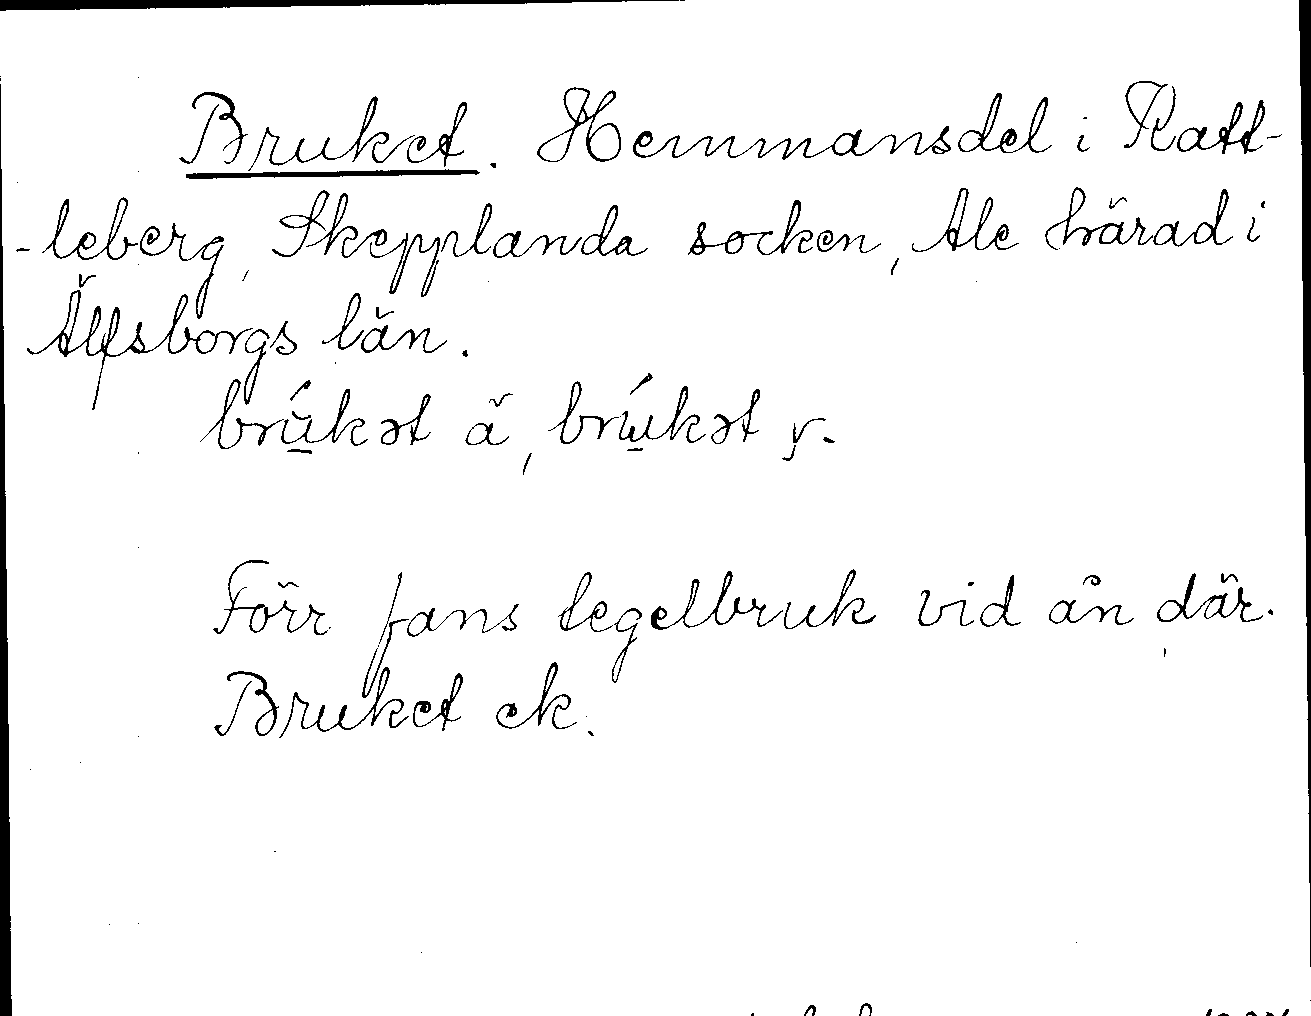 Bruket. Hemmansdel i Ratt-
-leberg, Skepplanda socken, Ale härad i
Älfsborgs län.
brúkət ä, brúkət y.
Förr fans tegelbruk vid ån där.
Bruket ek.